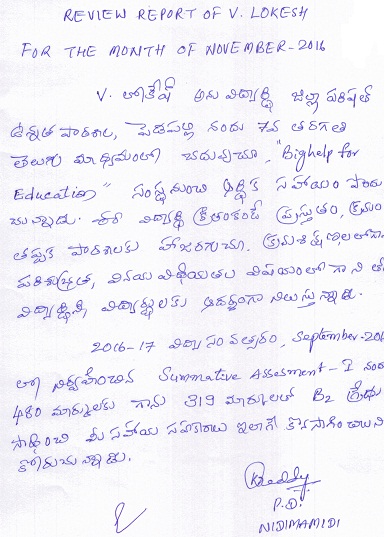 REVIEW REPORT OF V. LOKESH
FOR THE MONTH OF NOVEMBER-2016
V. లోకేష్ అను విద్యార్థి జిల్లా పరిషత్
ఉన్నత పాఠశాల, పెడపల్లి నందు 7వ తరగతి
తెలుగు మాధ్యమంలో చదువుచూ, "Bighelp for
Education" సంస్థ నుంచి ఆర్థిక సహాయం పొందు
చున్నాడు. ఈ విద్యార్థి క్రితంకంటే ప్రస్తుతం, క్రమం
తప్పక పాఠశాలకు హాజరగుచూ. క్రమశిక్షణలలోగాని
పరిశుభ్రత, వినయ విధేయతల విషయంలో గాని తో
విద్యార్థినీ, విద్యార్థులకు ఆదర్శంగా నిలుస్తున్నాడు.
2016-17 విద్యా సంవత్సరం, September-201
లో నిర్వహించిన Summative Assessment-I నందు
480 మార్కులకు గాను 319 మార్కులతో B2 గ్రేడు
సాధించి మీ సహాయ సహకారాలు ఇలాగే కొనసాగించాలని
కోరుచున్నాడు.
Reddy
P.D.
NIDIMAMIDI